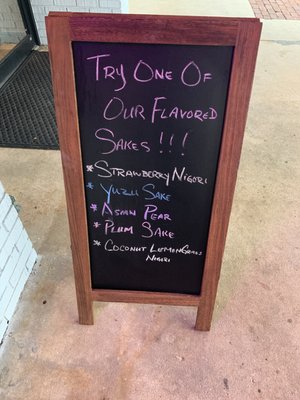 Try One Of
Our Flavored
Sakes!!!
* Strawberry Nigori
* Yuzu Sake
* Asian Pear
* Plum Sake
* Coconut Lemongrass
Nigori